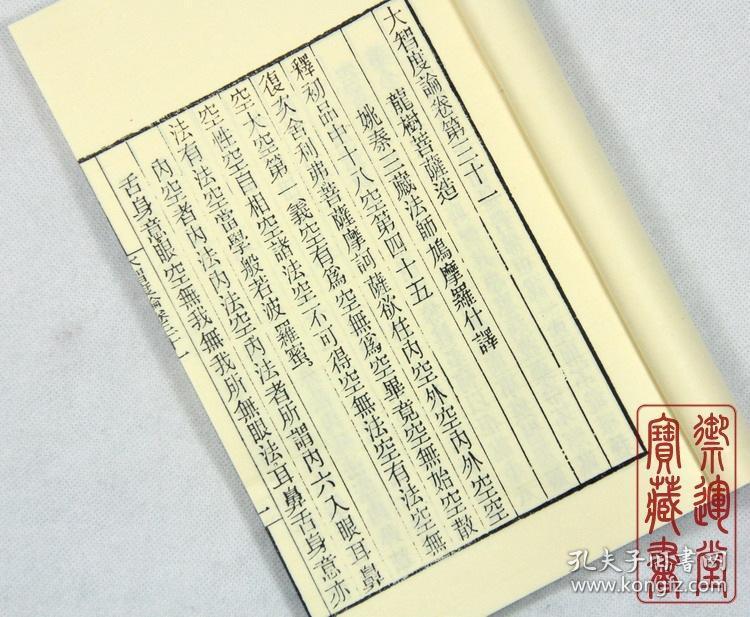 大智度論卷第三十一
龍樹菩薩造
姚秦三藏法師鳩摩羅什譯
釋初品中十八空第四十五
復次舍利弗菩薩摩訶薩欲住內空外空內外空空
空大空第一義空有為空無為空畢竟空無始空散
空性空自相空諸法空不可得空無法空有法空無
法有法空當學般若波羅蜜。
內空者內法內法空內法者所謂內六入眼耳鼻
舌身意眼空無我無我所無眼法耳鼻舌身意亦
大智度論卷三十一
一
御運堂
寶藏書
孔夫子旧书网
www.kongfz.com